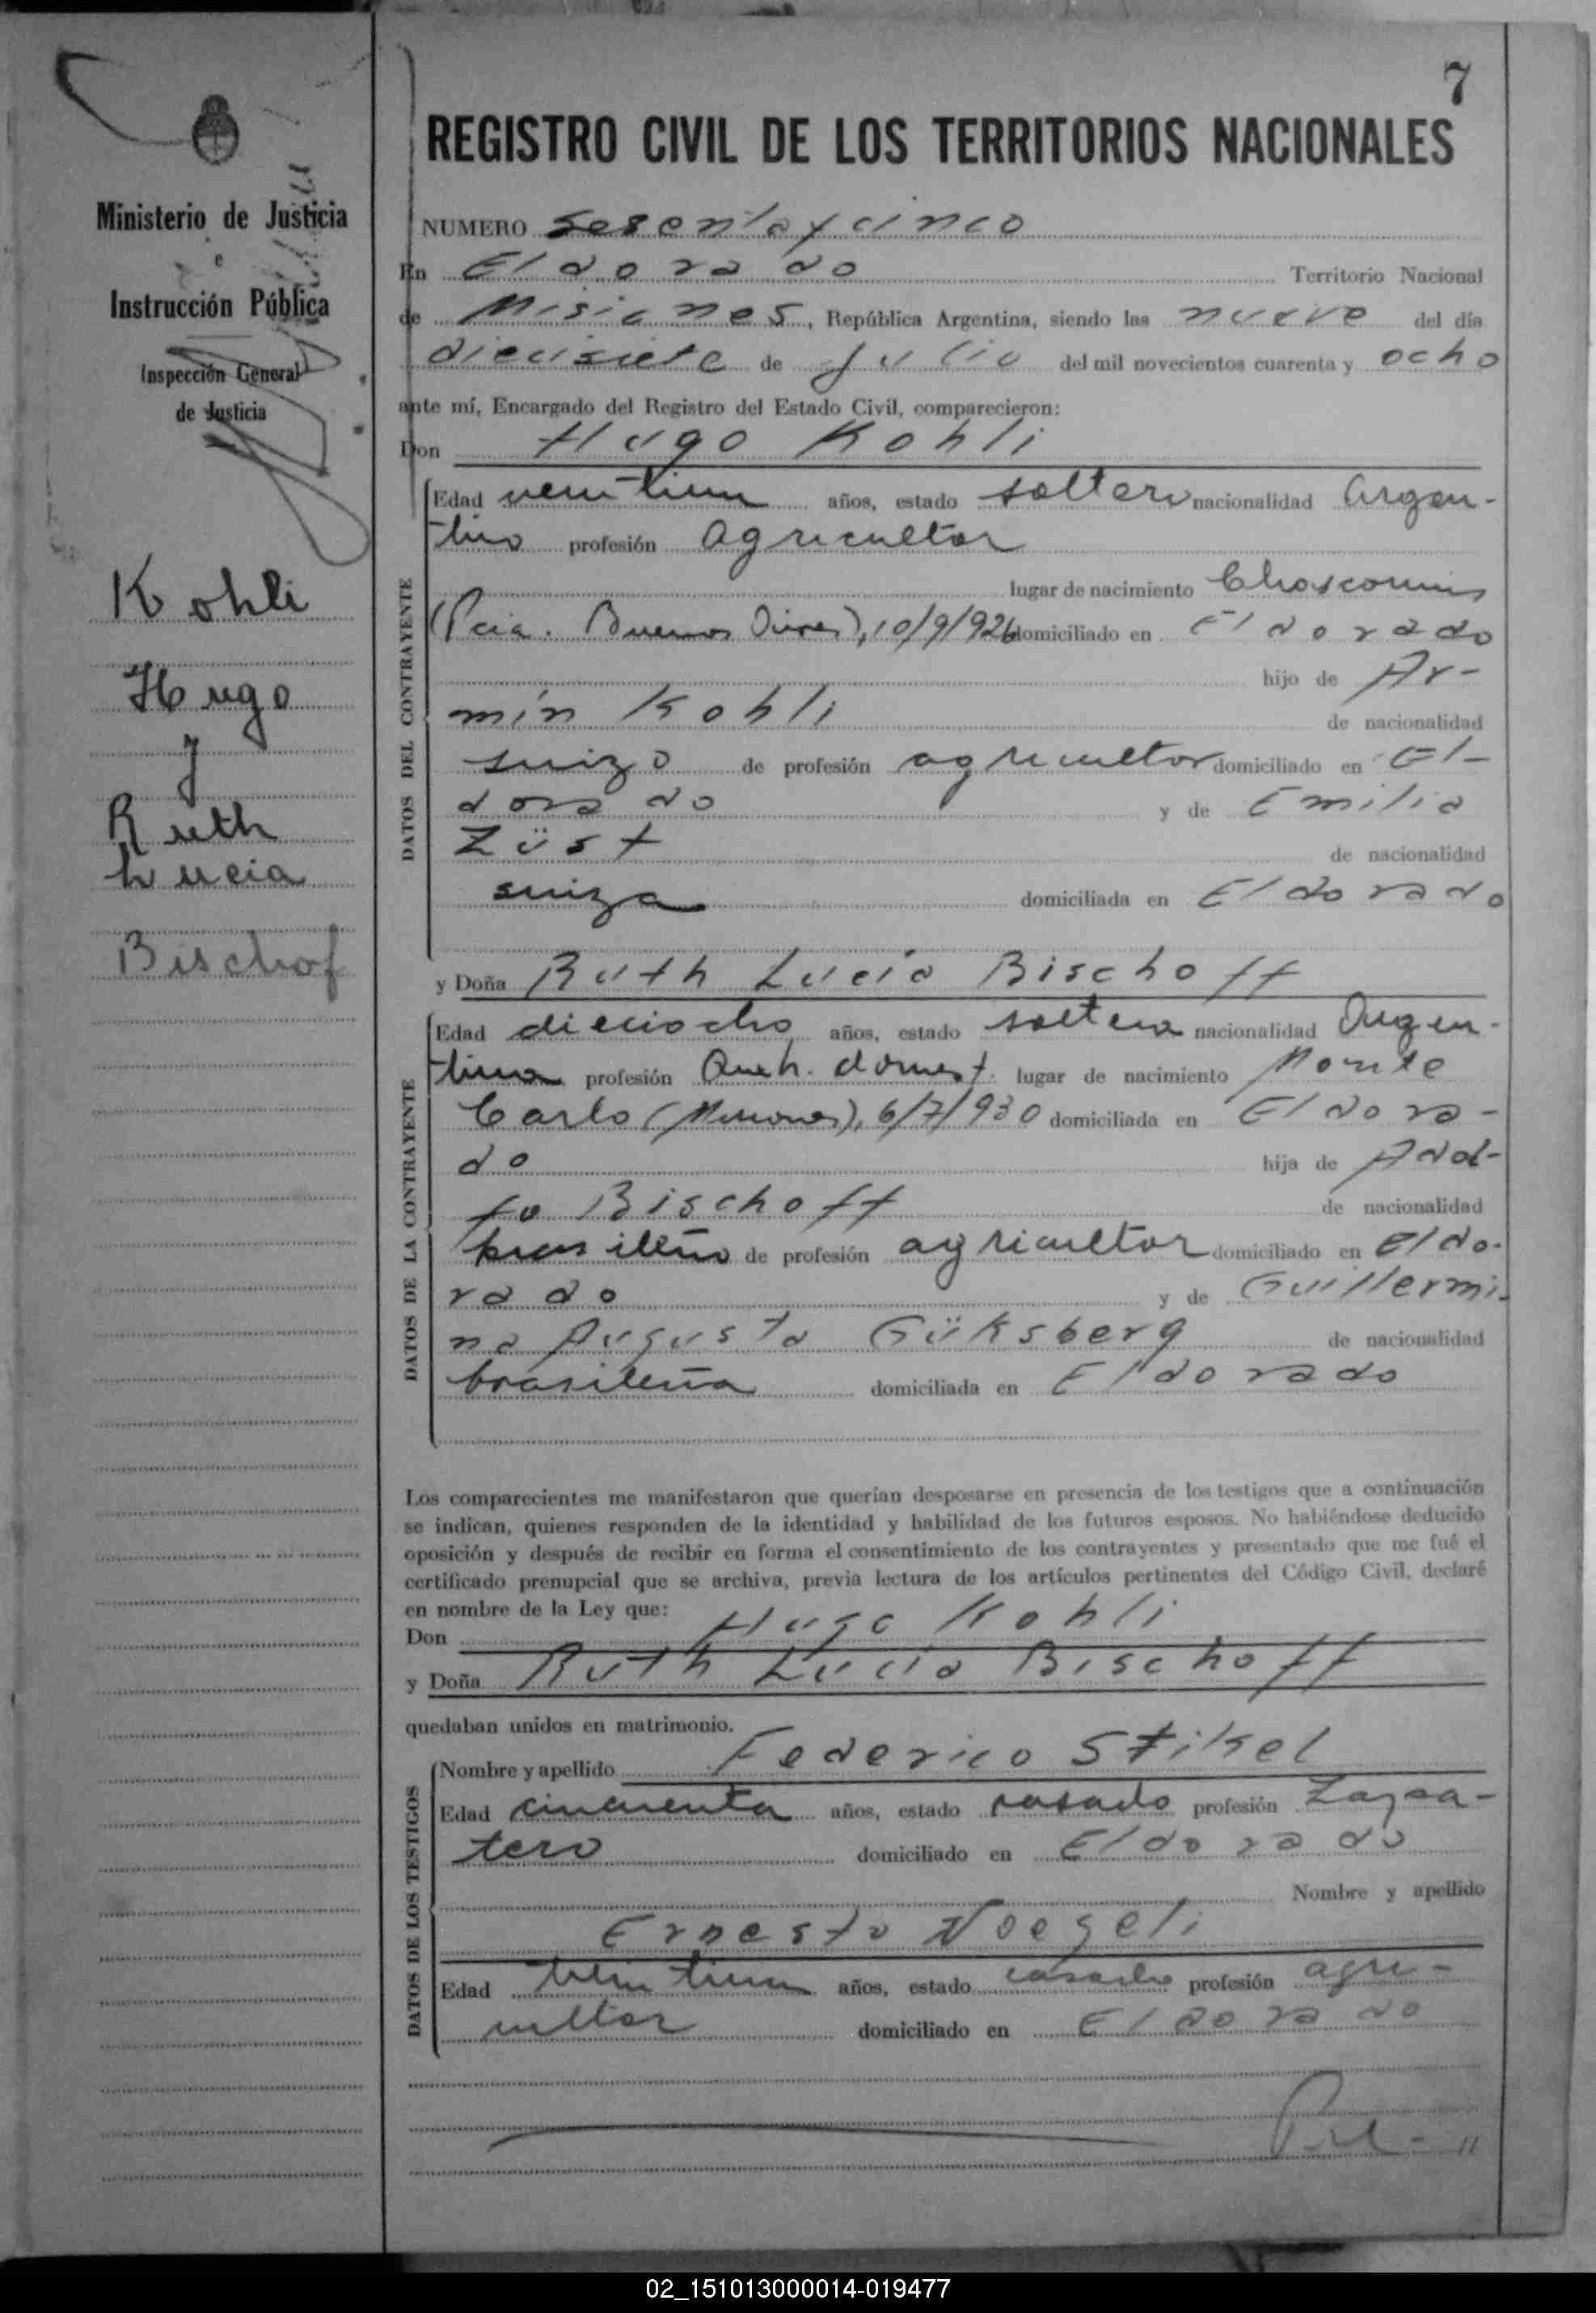 7
REGISTRO CIVIL DE LOS TERRITORIOS NACIONALES
Ministerio de Justicia
e
Instrucción Pública
Inspección General
de Justicia
Kohli
Hugo
y
Ruth
Lucia
Bischof
NUMERO sesenta y cinco
En Eldorado Territorio Nacional
de Misiones, República Argentina, siendo las nueve del día
diecisiete de Julio del mil novecientos cuarenta y ocho
ante mí, Encargado del Registro del Estado Civil, comparecieron:
Don Hugo Kohli
DATOS DEL CONTRAYENTE
Edad veintiun años, estado soltero nacionalidad Argen-
tino profesión Agricultor
lugar de nacimiento Chascomus
(Pcia. Buenos Aires), 10/9/926 domiciliado en Eldorado
hijo de Ar-
mín Kohli de nacionalidad
suizo de profesión agricultor domiciliado en El-
dorado y de Emilia
Züst de nacionalidad
suiza domiciliada en Eldorado
y Doña Ruth Lucía Bischoff
DATOS DE LA CONTRAYENTE
Edad dieciocho años, estado soltera nacionalidad Argen-
tina profesión Queh. domest. lugar de nacimiento Monte
Carlo (Misiones), 6/7/930 domiciliada en Eldora-
do hija de Adol-
fo Bischoff de nacionalidad
brasileño de profesión agricultor domiciliado en Eldo-
rado y de Guillermi-
na Augusta Güksberg de nacionalidad
brasileña domiciliada en Eldorado
Los comparecientes me manifestaron que querían desposarse en presencia de los testigos que a continuación
se indican, quienes responden de la identidad y habilidad de los futuros esposos. No habiéndose deducido
oposición y después de recibir en forma el consentimiento de los contrayentes y presentado que me fué el
certificado prenupcial que se archiva, previa lectura de los artículos pertinentes del Código Civil, declaré
en nombre de la Ley que:
Don Hugo Kohli
y Doña Ruth Lucía Bischoff
quedaban unidos en matrimonio.
DATOS DE LOS TESTIGOS
Nombre y apellido Federico Stikel
Edad cincuenta años, estado casado profesión Zapa-
tero domiciliado en Eldorado
Nombre y apellido
Ernesto Noegeli
Edad veintiun años, estado casado profesión agri-
cultor domiciliado en Eldorado
02_151013000014-019477